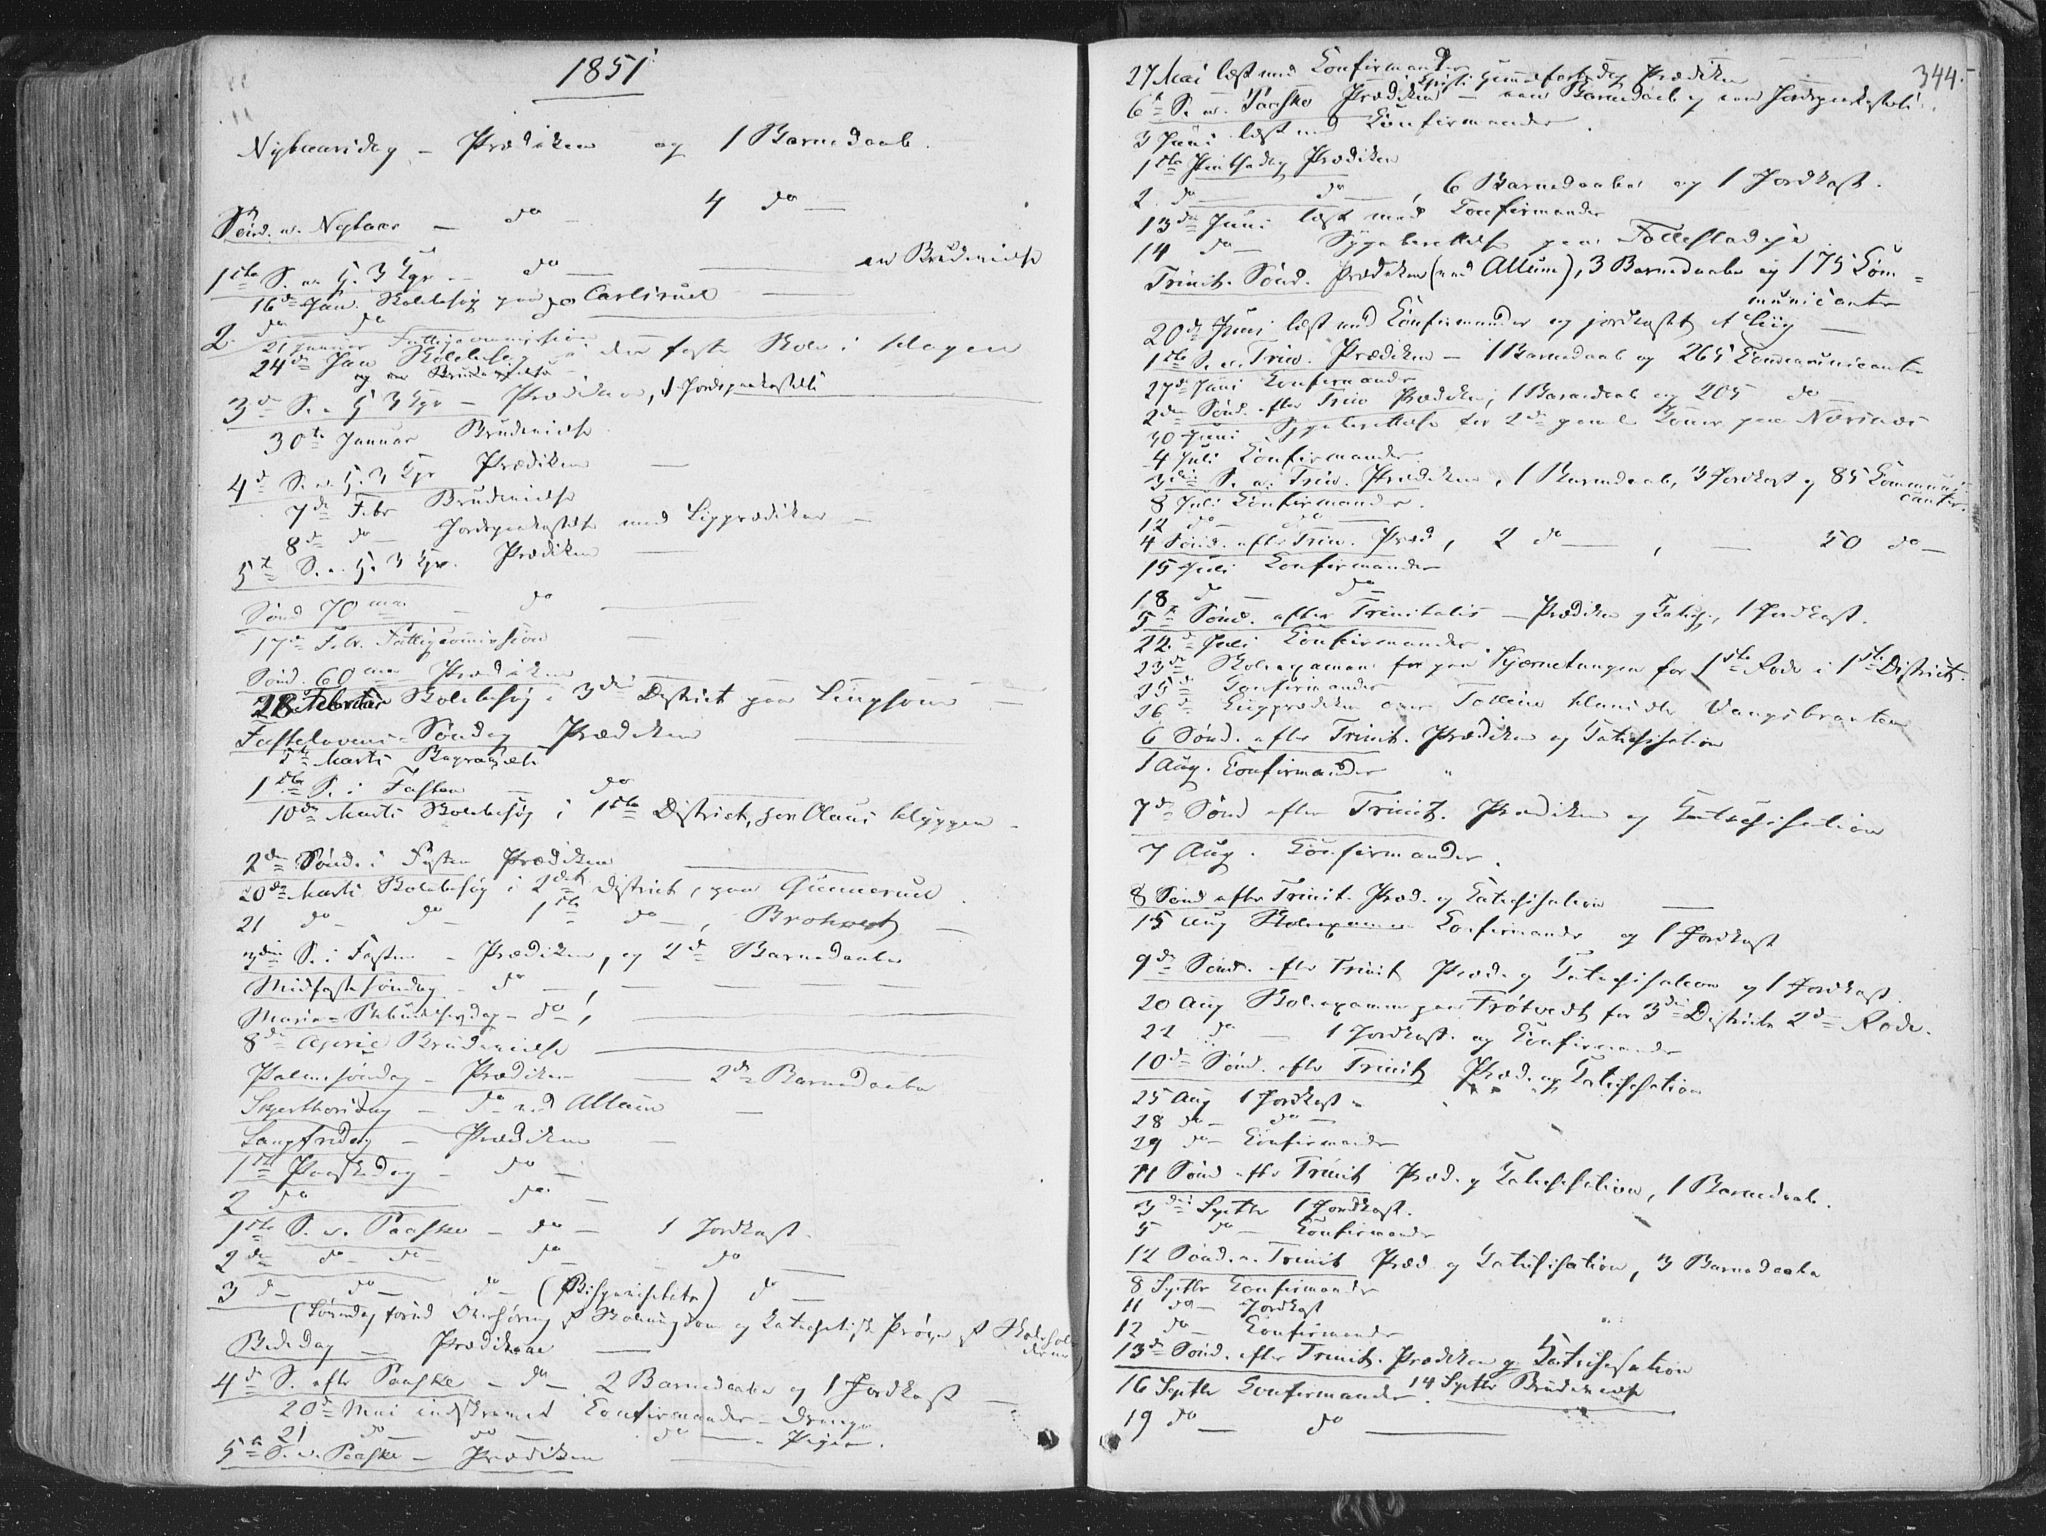 1851
Nytaarsdag - Prædiken og 1 Barnedaab.
Sönd. n. Nytaar - do - 4 do -
1ste S. n. H. 3 Kgr. - do - en Brudevielse
16de Jan. Skolebesög paa Carlsrud
2. do do
21 Januar Fattigcommission
24de Jan Skolebesög i den faste Skole i Hagen
og en Brudevielse
3de S. n. H. 3 Kgr - Prædiken, 1 Jordspaakastelse
30te Januar Brudevielse
4de S. n. H. 3 Kgr Prædiken -
7de Febr Brudevielse
8de do - Jordspaakastelse med Liigprædiken -
5te S. n. H. 3 Kgr. Prædiken -
Sönd 70mæ - do -
17de Febr. Fattigcommission -
Sönd. 60mæ Prædiken
28 Februar Skolebesög i 3die District paa
Fastelavens-Söndag Prædiken
5te Marts
1ste S. i Fasten - do
10de Marts Skolebesög i 1ste District, hos Olaus
2den Sönd. i Fasten Prædiken
20de Marts Skolebesög i 2det District, paa Gunnerud
21 do - do - 1ste do -, Brohvedt -
3die S. i Fasten - Prædiken, og 2de Barnedaabe
Midfastesöndag - do -, - - -
Mariæ-Bebudelsesdag - do,
8de April Brudevielse
Palmesöndag - Prædiken - 2de Barnedaabe
Skjærthorsdag - do ved Altaren -
Langfredag - Prædiken -
1ste Paaskedag - do -
2 do do -
1ste S. n. Paaske - do - 1 Jordkast.
2den do do - do - do -
3de do - do - (Bispevisitats) do -
(Löverdag forud Overhöring af Skoleungdom og Katechetisk Pröve af Skolehol-
derne)
Bededag - Prædiken -
4de S. efter Paaske - do - 2 Barnedaabe og 1 Jordkast -
20de Mai indskrevet Confirmander - Drenge
21 do - do - do - Piger.
5te S. n. Paaske - Prædiken
344.
27 Mai læst med Confirmander
Christi Himmelfartsdag Prædiken
6te S. n. Paaske Prædiken - en Barnedaab og en Jordspaakastelse.
3 Juni læst med Confirmander.
1ste Pintsedag Prædiken
2. do - do -, 6 Barnedaabe og 1 Jordkast.
13de Juni læst med Confirmander
14 do - Sygeberettelse paa Follestadeje
Trinit. Sönd. Prædiken (ved Altaren), 3 Barnedaabe og 175 Com-
municanter
20de Juni læst med Confirmander og jordkastet et Liig -
1ste S. n. Trin. Prædiken - 1 Barnedaab og 265 Communicanter
27de Juni Confirmander
2den Sönd. efter Trin Prædiken, 1 Barnedaab og 205 do -
30 Juni Sygeberettelse for 2de gamle Koner paa Næsnæs
4 Juli Confirmander
3die S. n. Trin. Prædiken, 1 Barnedaab, 3 Jordkast og 85 Communi-
canter.
8 Juli Confirmander.
12 do - do -
4 Sönd. efter Trin. Præd, 2 do -, - 50 do -
15 Juli Confirmander
18 do - do -
5te Sönd. efter Trinitatis - Prædiken og Katech., 1 Jordkast.
22de Juli Confirmander
23de Skoleexamen for paa Kjærnetangen for 1ste Rode i 1ste District.
25de Confirmander
26de Liigprædiken over
6 Sönd. efter Trinit. Prædiken og Katechisation
1 Aug. Confirmander
7de Sönd efter Trinit. Prædiken og Katechisation
7 Aug. Confirmander.
8 Sönd efter Trinit. Præd. og Katechisation -
15 Aug Skoleexamen Confirmander og 1 Jordkast
9de Sönd. efter Trinit Præd. og Katechisation og 1 Jordkast.
20 Aug Skoleexamen paa Frötvedt for 3die Districts 2de Rode.
22 do - 1 Jordkast. og Confirmander
10de Sönd. efter Trinit Præd. og Katechisation
25 Aug 1 Jordkast -
28 do - do -
29 do - Confirmander
11 Sönd efter Trinit Præd. og Katechisation, 1 Barnedaab.
3die Septbr 1 Jordkast.
5 do - Confirmander
12 Sönd. n. Trinit Præd og Katechisation, 3 Barnedaabe
8 Septbr Confirmander
11 do - Jordkast
12 do - Confirmander
13de Sönd. efter Trinit. Prædiken og Katechisation
16 Septbr Confirmander. 14 Septbr Brudevielse
19 do - do